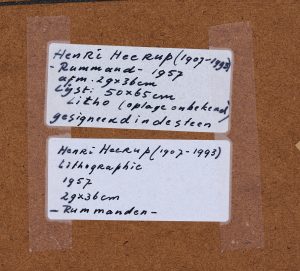 Henri Heerup (1907-1993)
-Rummand- 1957
afm. 29x36cm
Lijst: 50x65cm
Litho (oplage onbekend)
gesigneerd in de steen
Henri Heerup (1907-1993)
Lithographie
1957
29x36cm
- Rummanden -